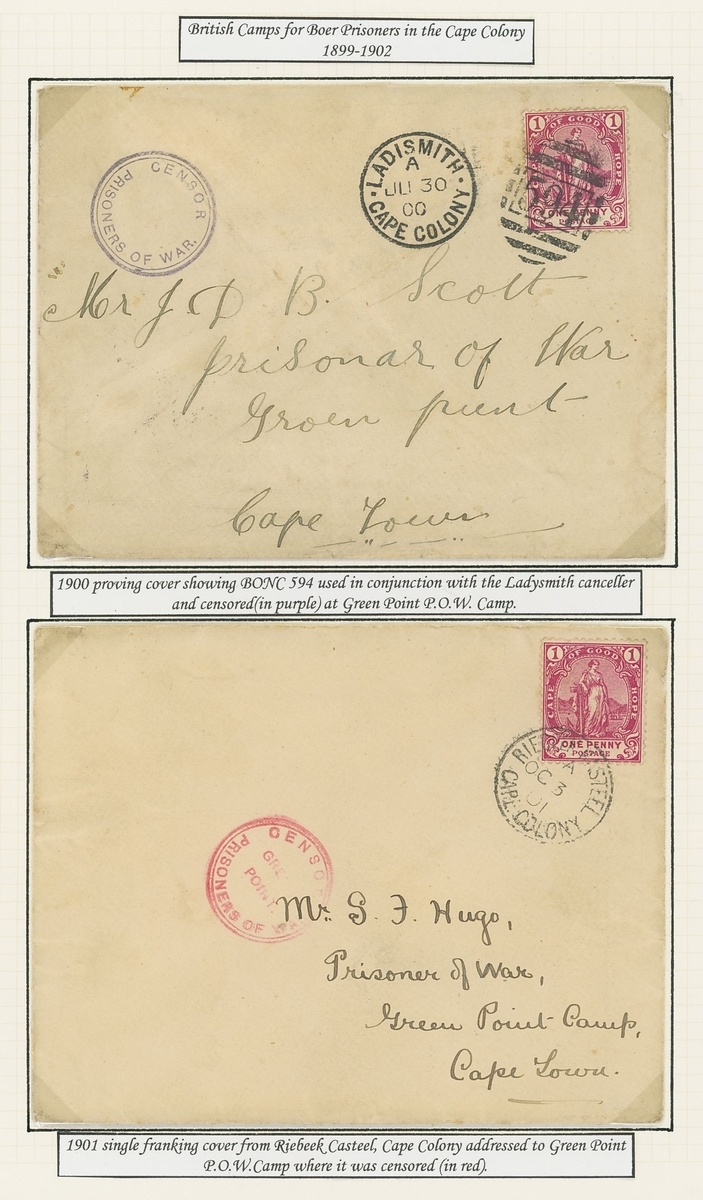 British Camps for Boer Prisoners in the Cape Colony
1899-1902
CENSOR
PRISONERS OF WAR.
LADISMITH
A
JU 30
00
CAPE COLONY
1 OF GOOD 1
HOPE
ONE PENNY
594
Mr J D B. Scott
prisonar of War
Groen punt
Cape Town
1900 proving cover showing BONC 594 used in conjunction with the Ladysmith canceller
and censored(in purple) at Green Point P.O.W. Camp.
1 OF GOOD 1
CAPE HOPE
ONE PENNY
POSTAGE
A
OC 3
01
CAPE COLONY
CENSO
GRE
POINT.
PRISONERS OF
Mr. S. F. Hugo,
Prisoner of War,
Green Point Camp,
Cape Town.
1901 single franking cover from Riebeek Casteel, Cape Colony addressed to Green Point
P.O.W.Camp where it was censored (in red).